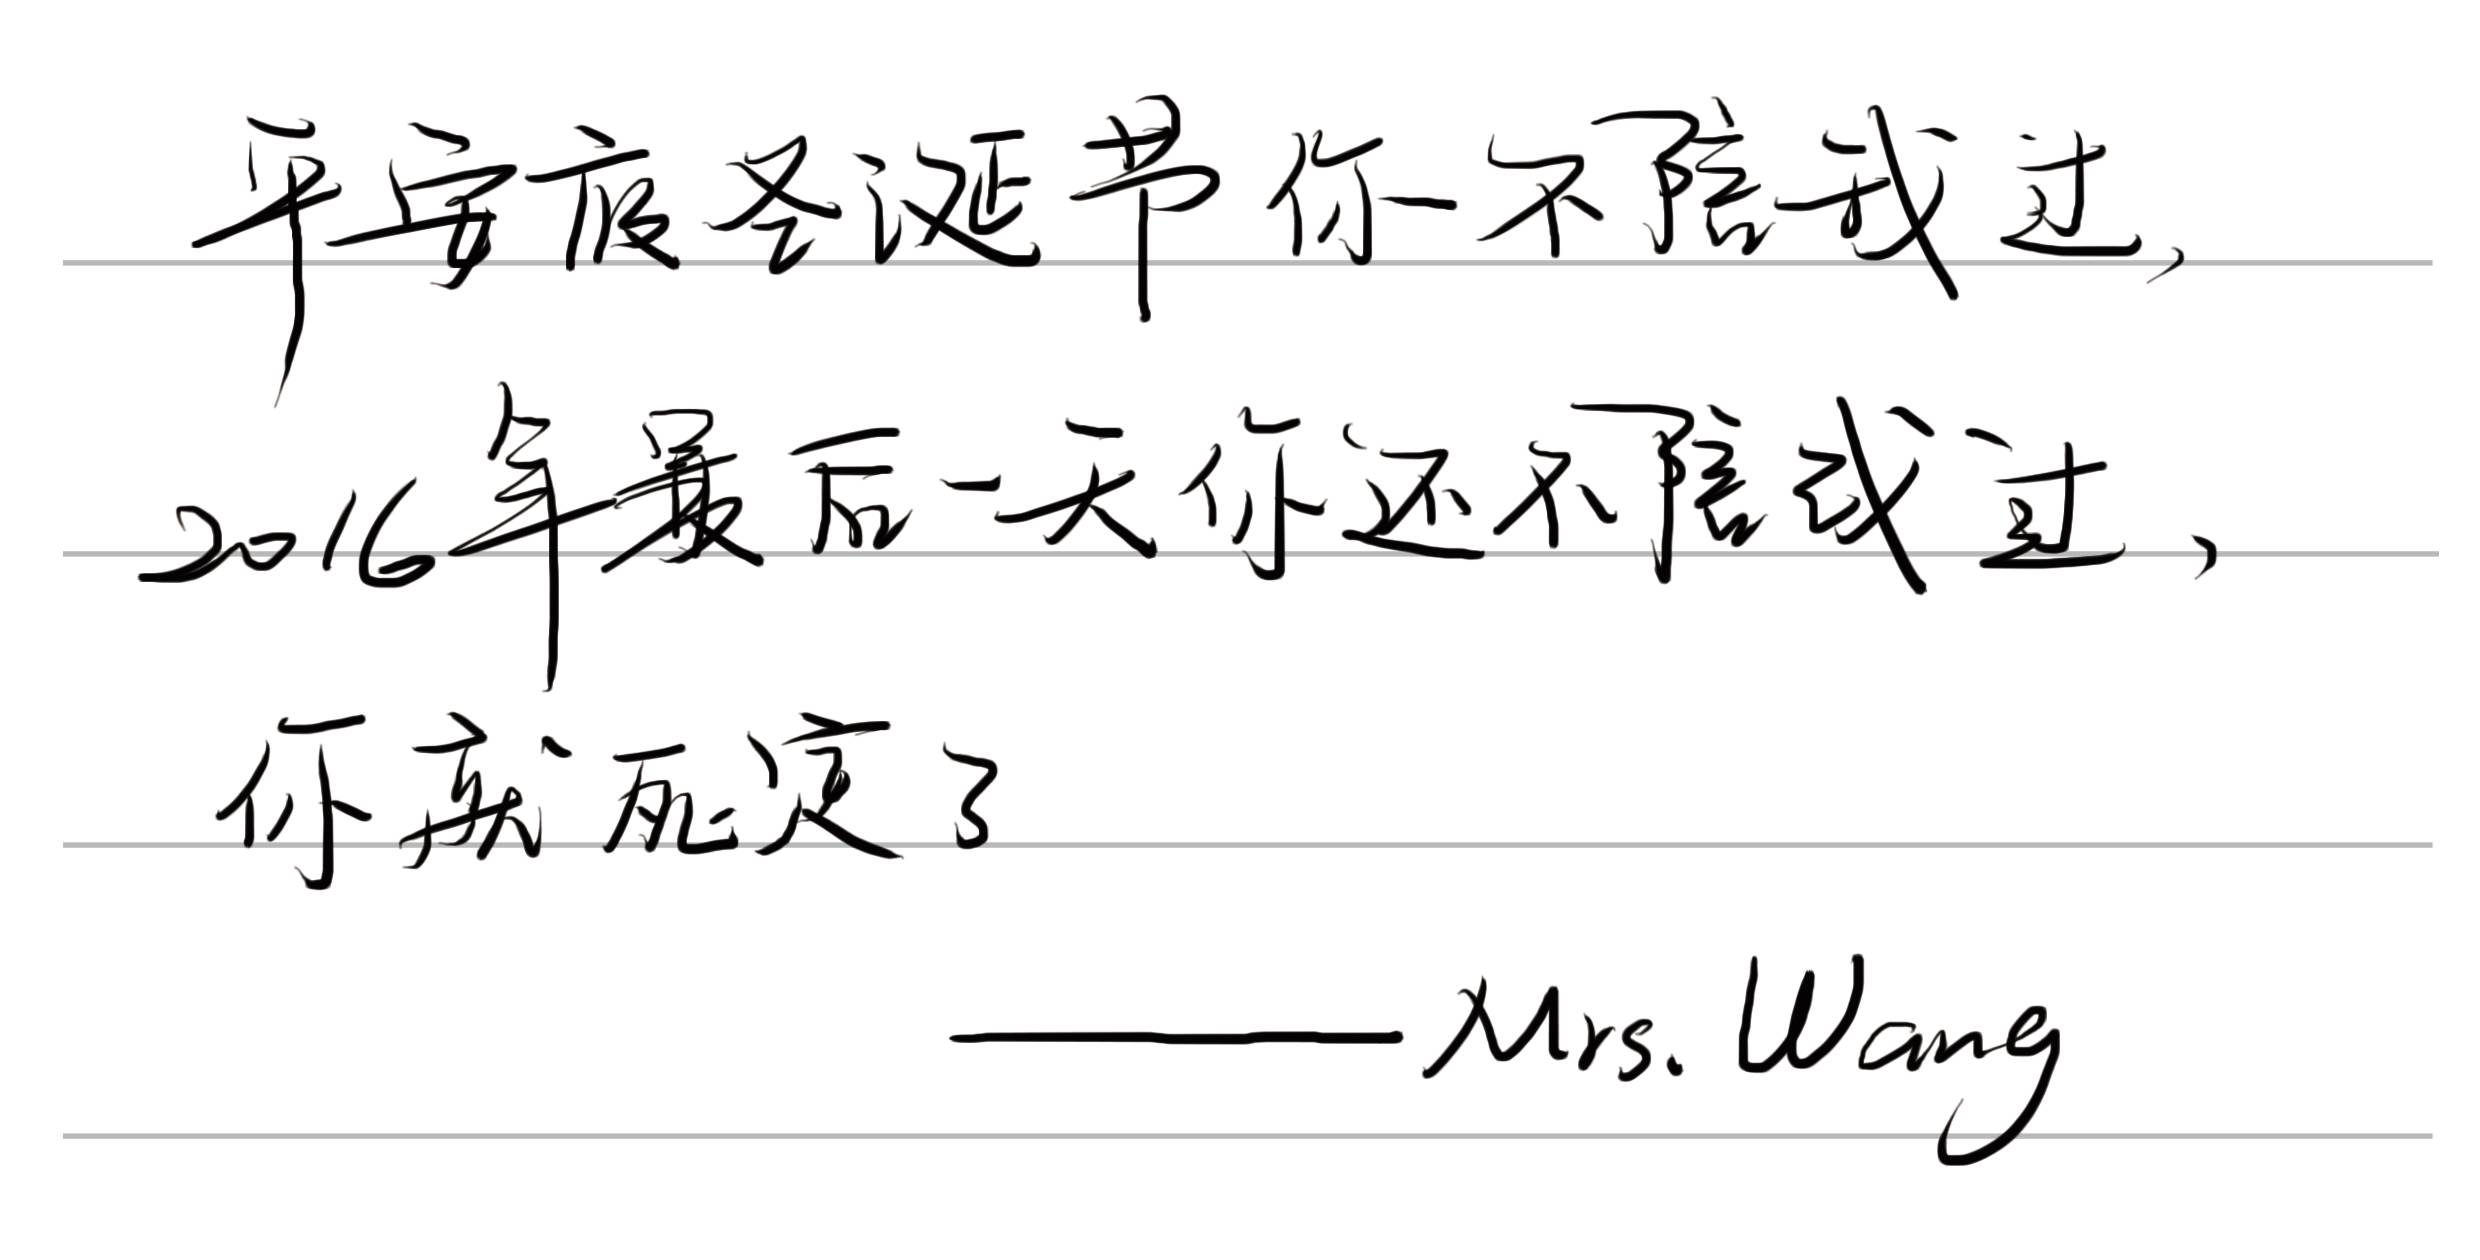 平安夜圣诞节你不陪我过，
2016年最后一天你还不陪我过，
你就死定了
——Mrs. Wang